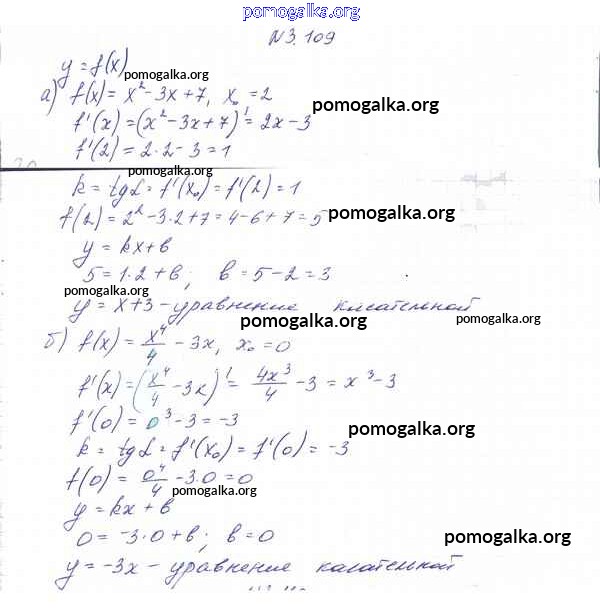 pomogalka.org
N 3.109
y = f(x)
pomogalka.org
а) f(x) = x² - 3x + 7, x₀ = 2
pomogalka.org
f'(x) = (x² - 3x + 7)' = 2x - 3
f'(2) = 2·2 - 3 = 1
pomogalka.org
k = tgα = f'(x₀) = f'(2) = 1
f(2) = 2² - 3·2 + 7 = 4 - 6 + 7 = 5
pomogalka.org
y = kx + в
5 = 1·2 + в; в = 5 - 2 = 3
pomogalka.org
y = x + 3 - уравнение касательной
pomogalka.org
pomogalka.org
б) f(x) = x⁴/4 - 3x, x₀ = 0
pomogalka.org
f'(x) = (x⁴/4 - 3x)' = 4x³/4 - 3 = x³ - 3
f'(0) = 0³ - 3 = -3
pomogalka.org
k = tgα = f'(x₀) = f'(0) = -3
f(0) = 0⁴/4 - 3·0 = 0
pomogalka.org
y = kx + в
0 = -3·0 + в; в = 0
pomogalka.org
y = -3x - уравнение касательной